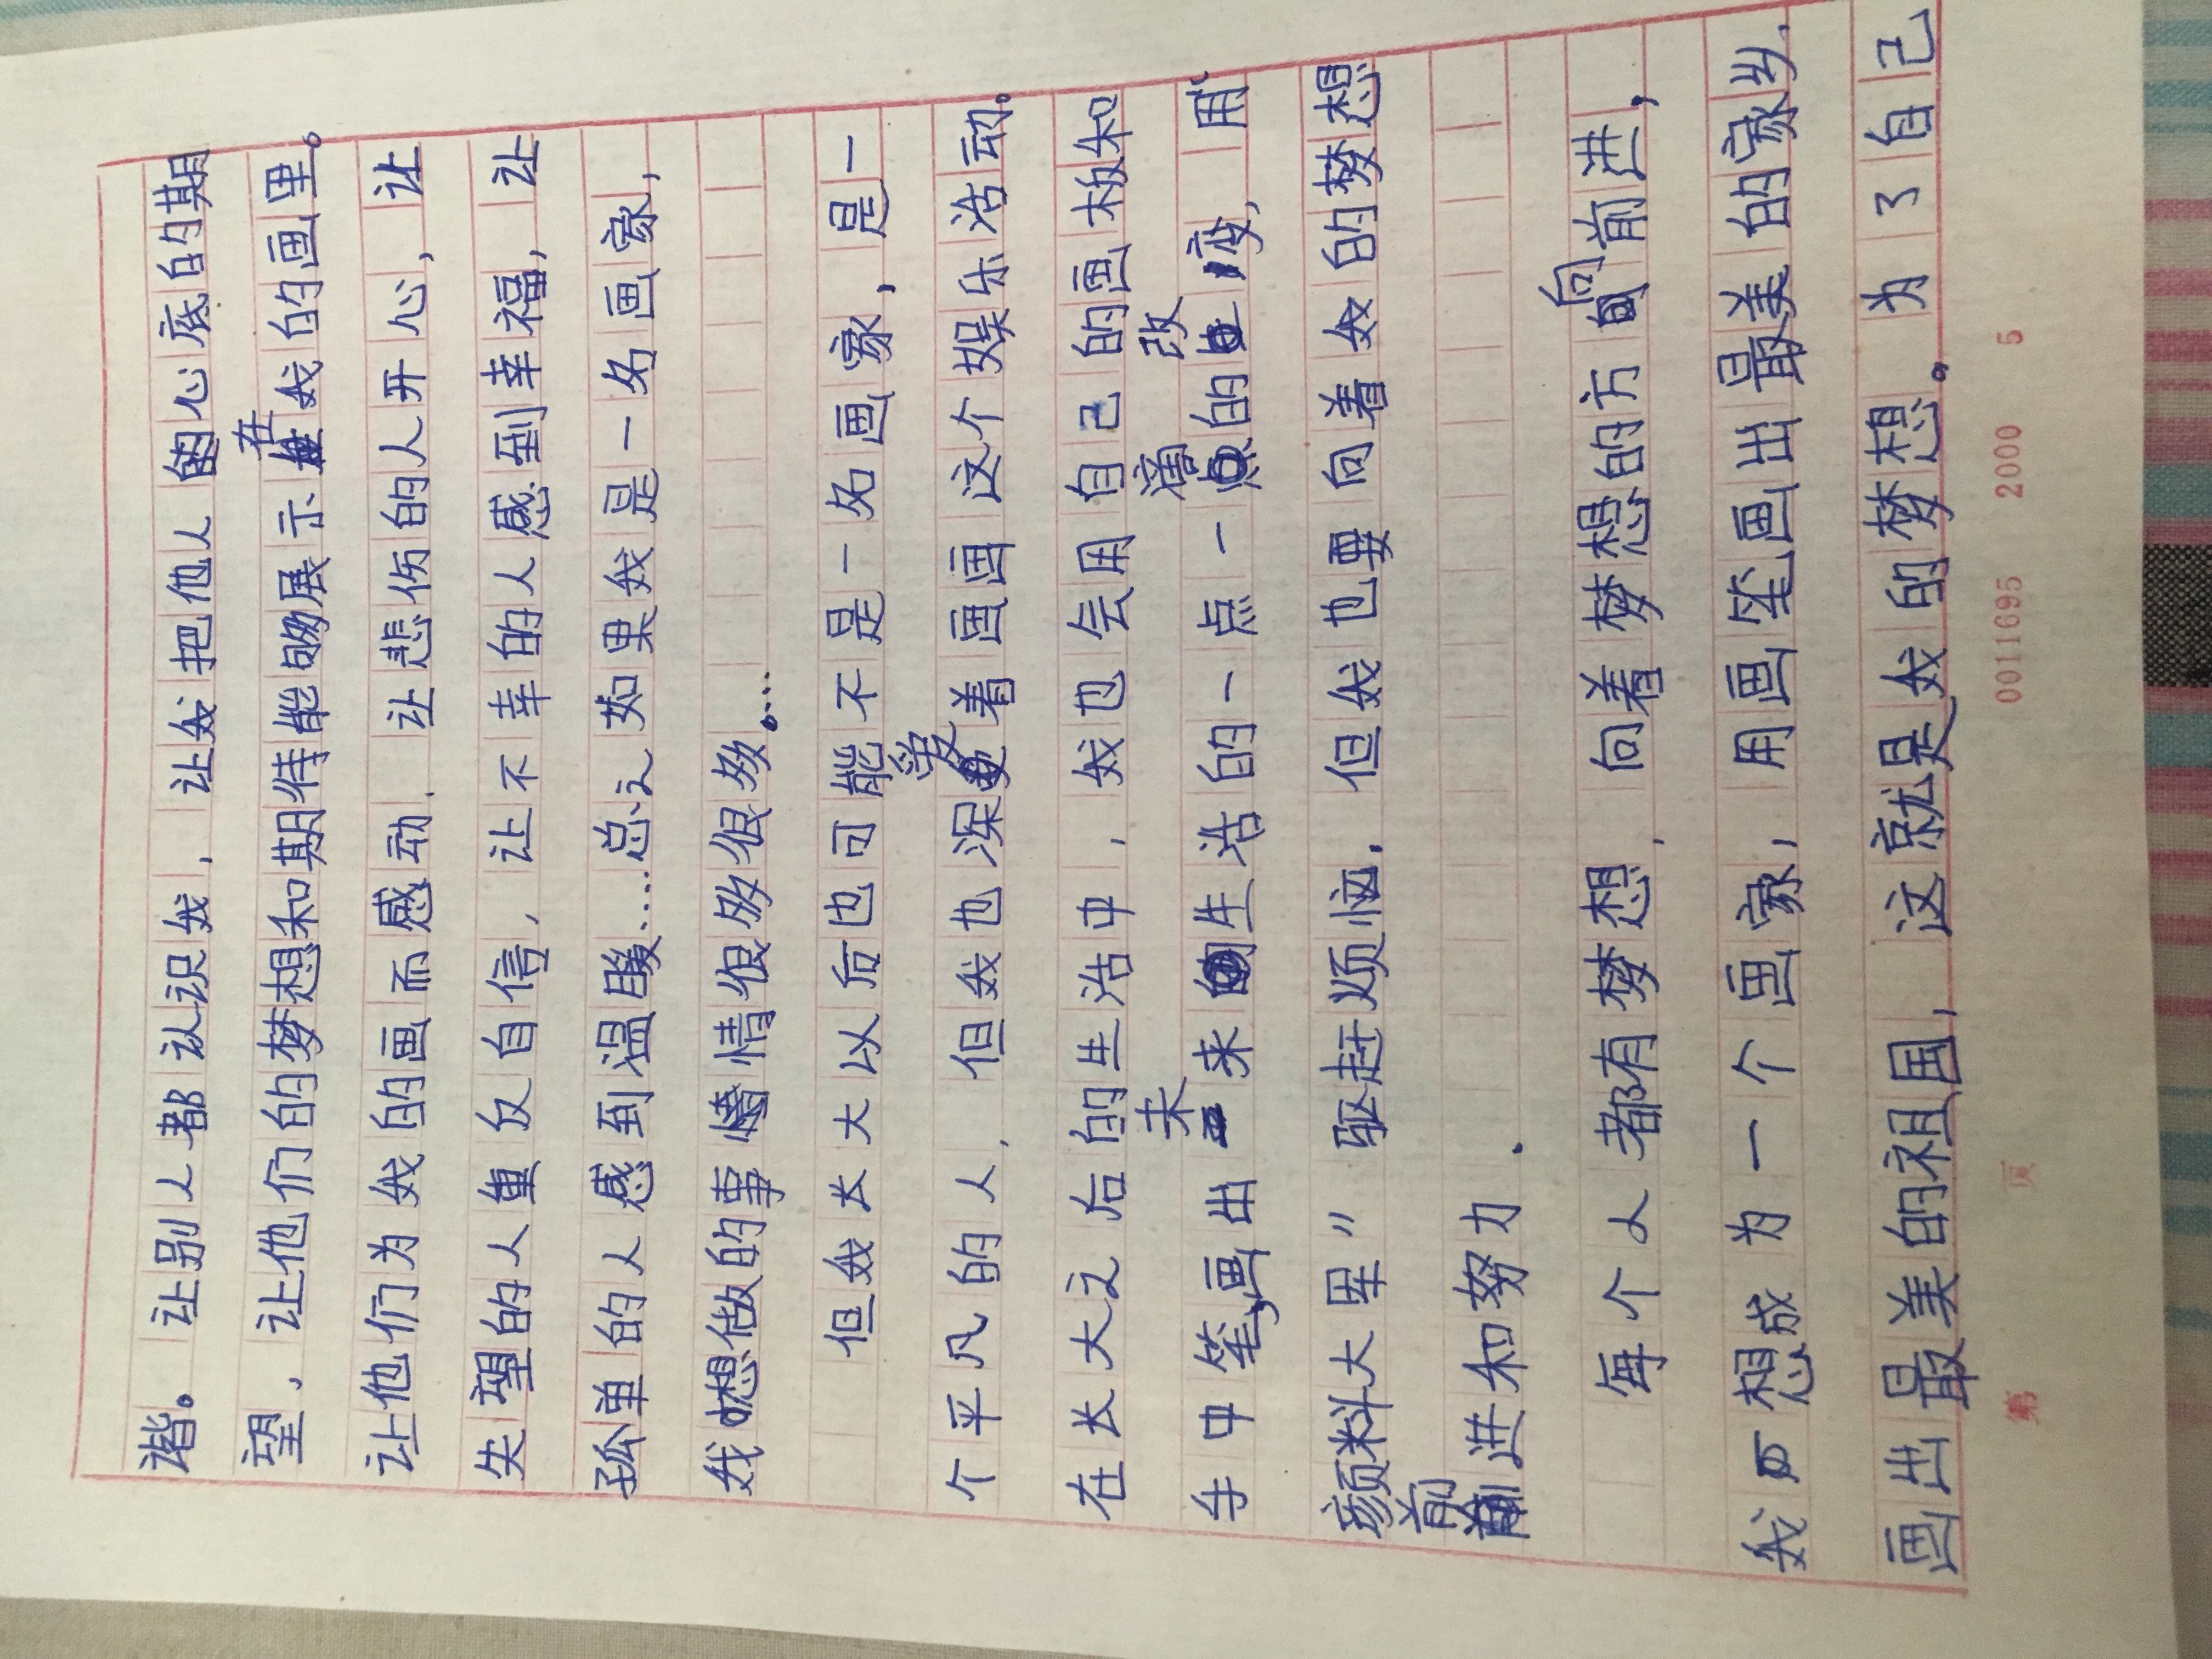 谐。让别人都认识我，让我把他人的心底的期
望、让他们的梦想和期待能够展示在我的画里。
让他们为我的画而感动、让悲伤的人开心，让
失望的人重反自信，让不幸的人感到幸福，让
孤单的人感到温暖……总之如果我是一名画家，
我想做的事情很多很多。…
但我长大以后也可能不是一名画家，是一
个平凡的人，但我也深爱着画画这个娱乐活动。
在长大之后的生活中，我也会用自己的画板和
手中笔，画出未来生活的一点一滴的改变，用
颜料大里〃驱赶烦恼，但我也要向着我的梦想
前进和努力．
每个人都有梦想，向着梦想的方向前进，
我想成为一个画家，用画笔画出最美的家乡，
画出最美的祖国，这就是我的梦想。为了自己
第 页 0011695 2000 5